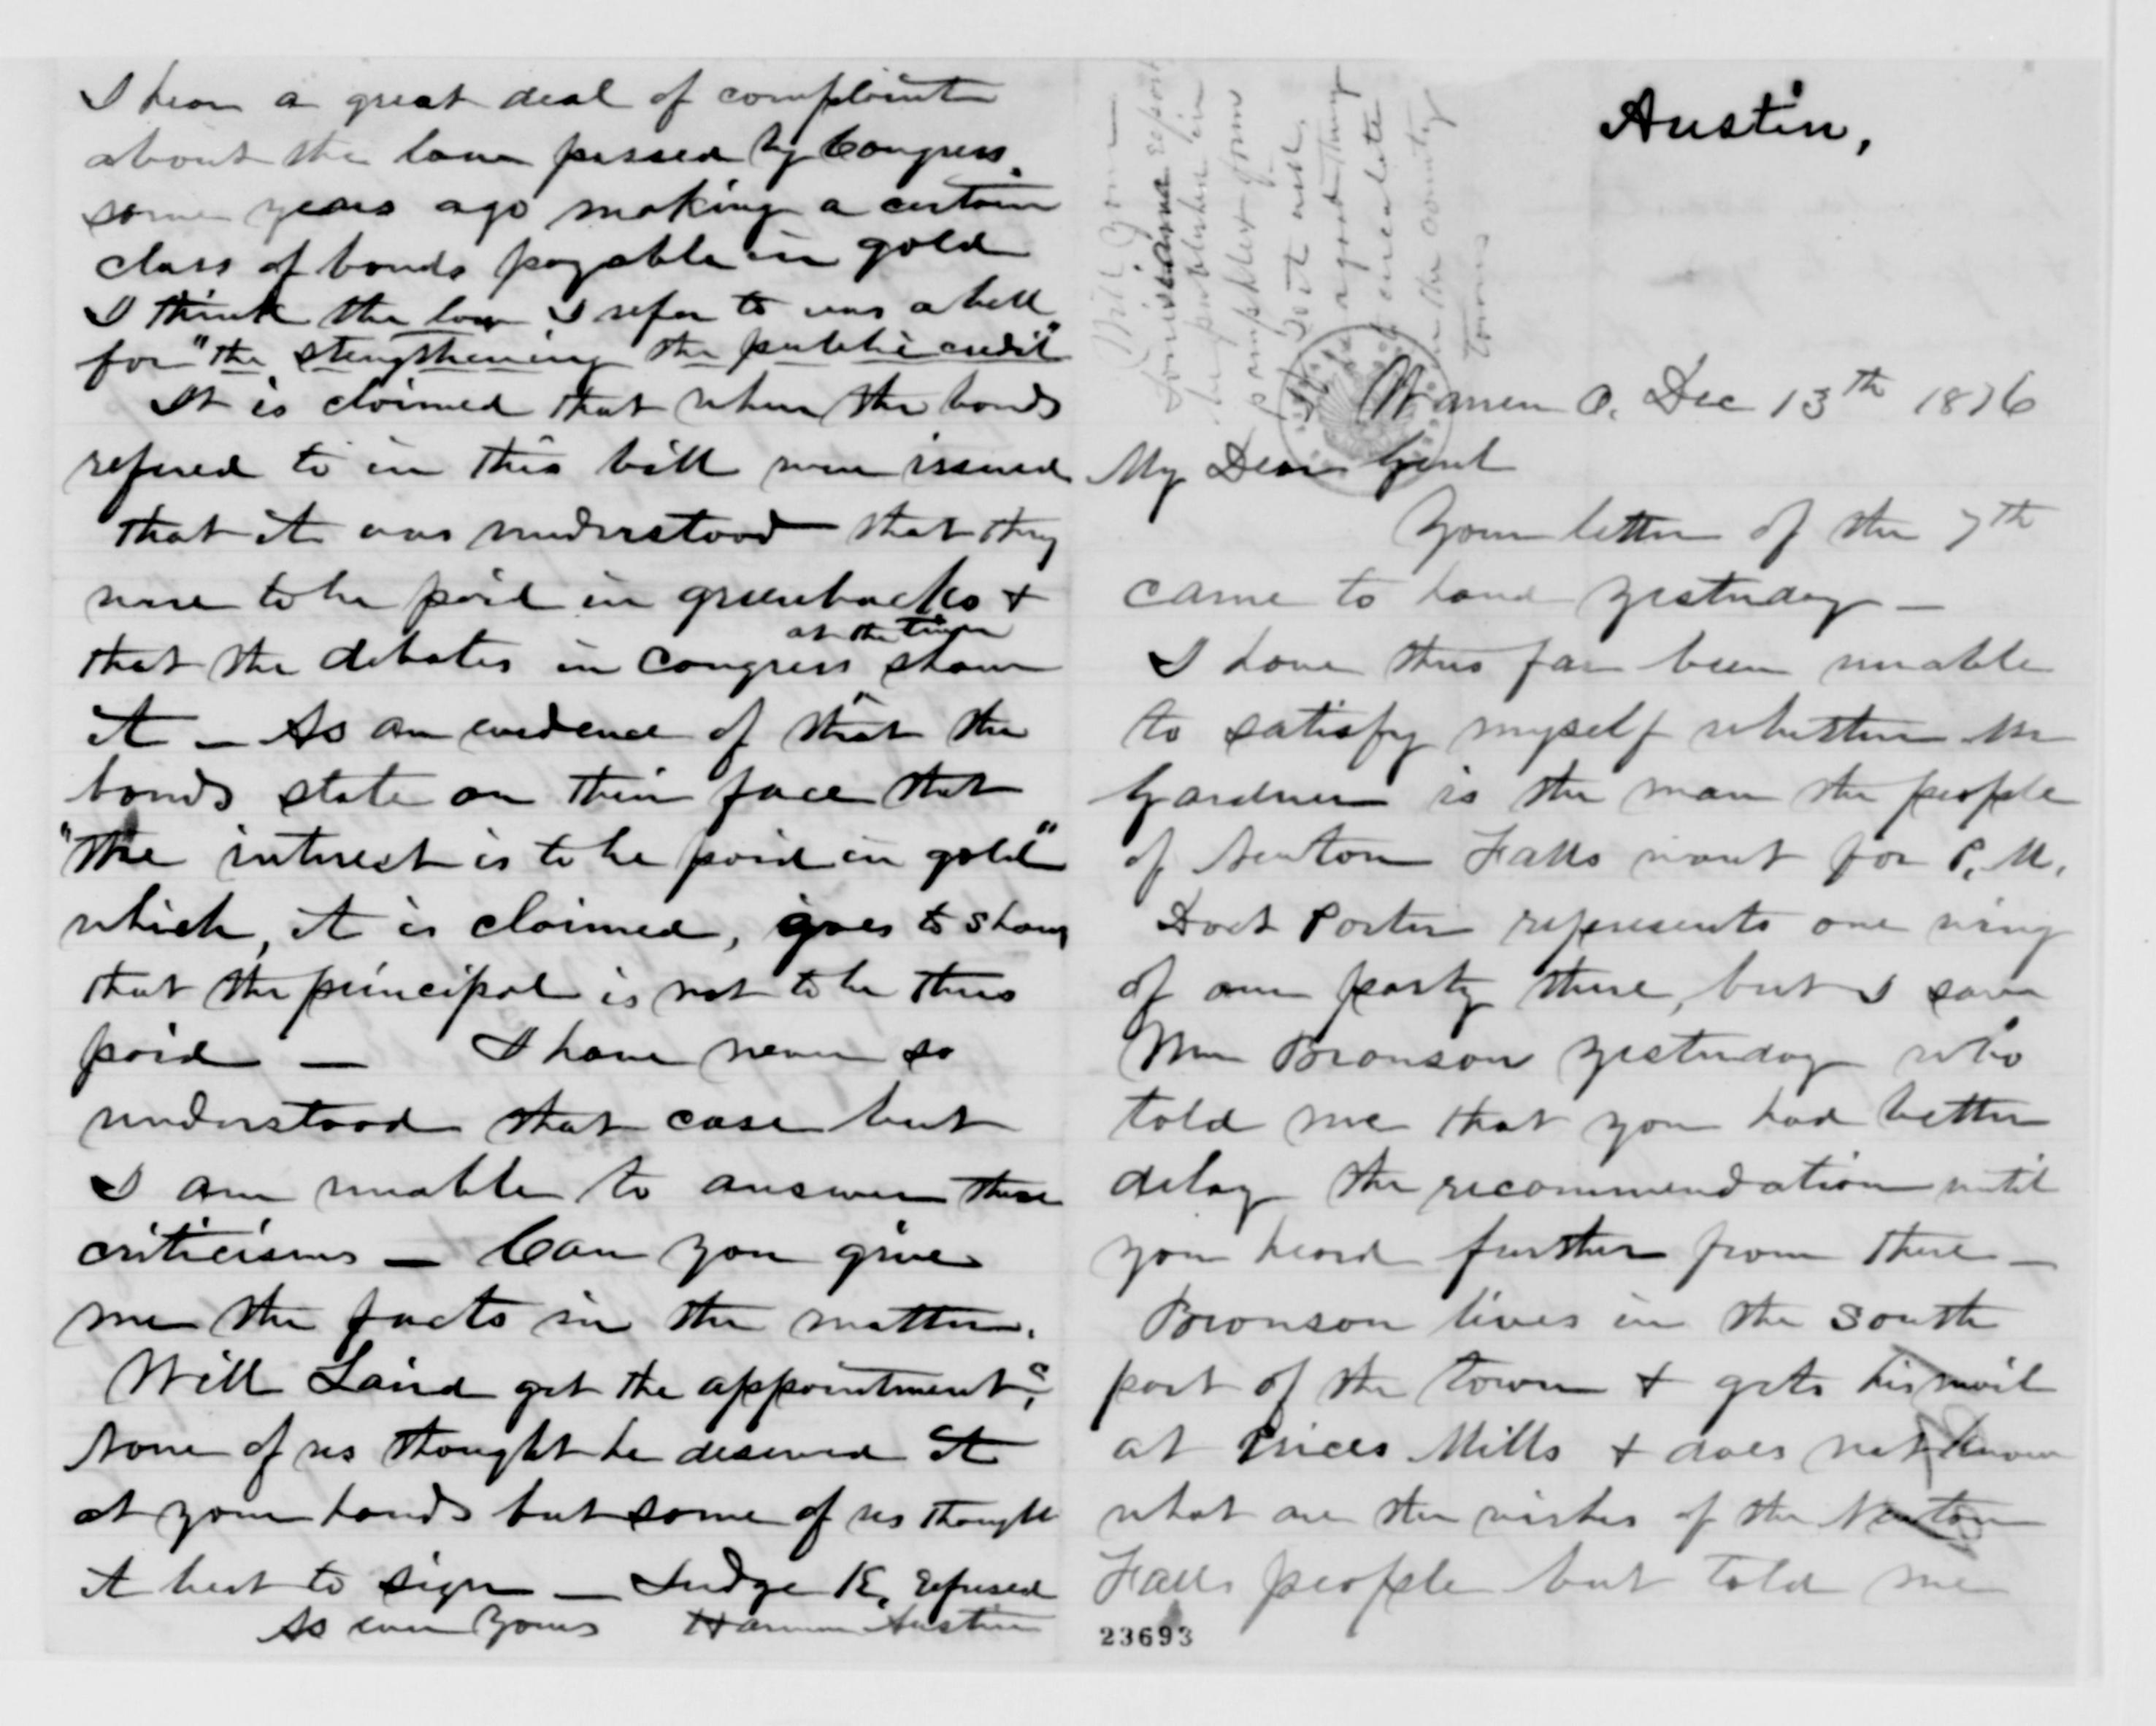 Austin,
Warren O. Dec 13th 1876
My Dear Genl
Your letter of the 7th
came to hand yesterday —
I have thus far been unable
to satisfy myself whether Mr
Gardner is the man the people
of Newton Falls want for P. M.
Doct Porter represents one wing
of our party there, but I saw
Mr Bronson yesterday who
told me that you had better
delay the recommendation until
you heard further from there —
Bronson lives in the South
part of the town & gets his mail
at Prices Mills & does not know
what are the wishes of the Newton
Falls people but told me
23693
I hear a great deal of complaint
about the law passed by Congress
some years ago making a certain
class of bonds payable in gold
I think the law I refer to was a bill
for "the stengthening the public credit"
It is claimed that when the bonds
refered to in this bill were issued
that it was understood that they
were to be paid in greenbacks &
that the debates in Congress at the time show
it — As an evidence of that the
bonds state on their face that
"the interest is to be paid in gold"
which, it is claimed, goes to show
that the principal is not to be thus
paid — I have never so
understood that case but
I am unable to answer these
criticisms — Can you give
me the facts in the matter.
Will Laird get the appointment?
None of us thought he deserved it
at your hands but some of us thought
it best to sign — Judge K. refused
As ever Yours Harmon Austin
Will your
Louisiana report
be published in
pamphlet form
Don't need
a good many
to circulate
in the county
towns